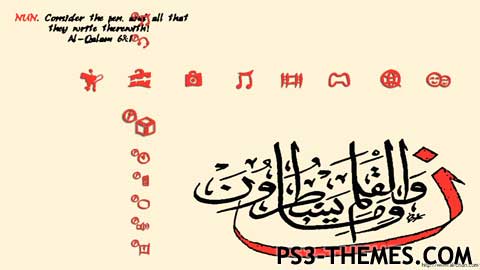 NUN. Consider the pen, and all that
they write therewith!
Al-Qalam 68:1
ن والقلم
وما يسطرون
PS3-THEMES.COM